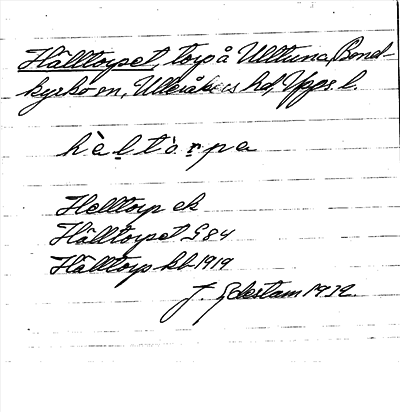 Hälltorpet, torp å Ulltuna, Bond-
kyrko sn, Ulleråkers hd, Upps. l.
hèḷtòṛpe
Helltorp ek
Hälltorpet G 84
Hälltorp kb 1919
J. Edestam 1932.